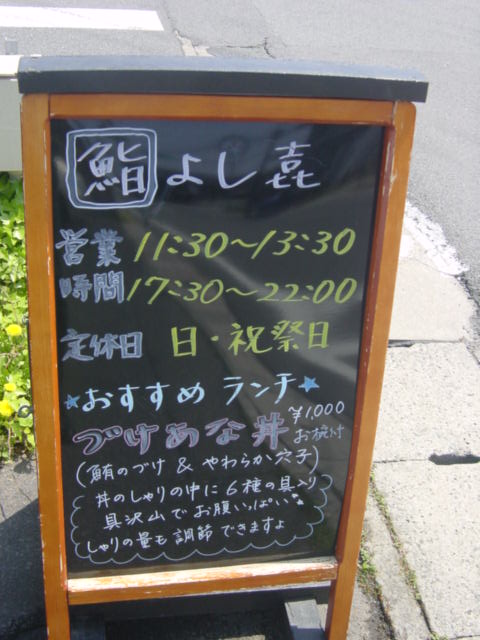 鮨 よし㐂
営業時間 11:30〜13:30
17:30〜22:00
定休日 日・祝祭日
★おすすめ ランチ★
づけあな丼 ¥1,000 お椀付
(鮪のづけ & やわらか穴子)
丼のしゃりの中に6種の具入り
具沢山でお腹いっぱい
しゃりの量も調節できますょ